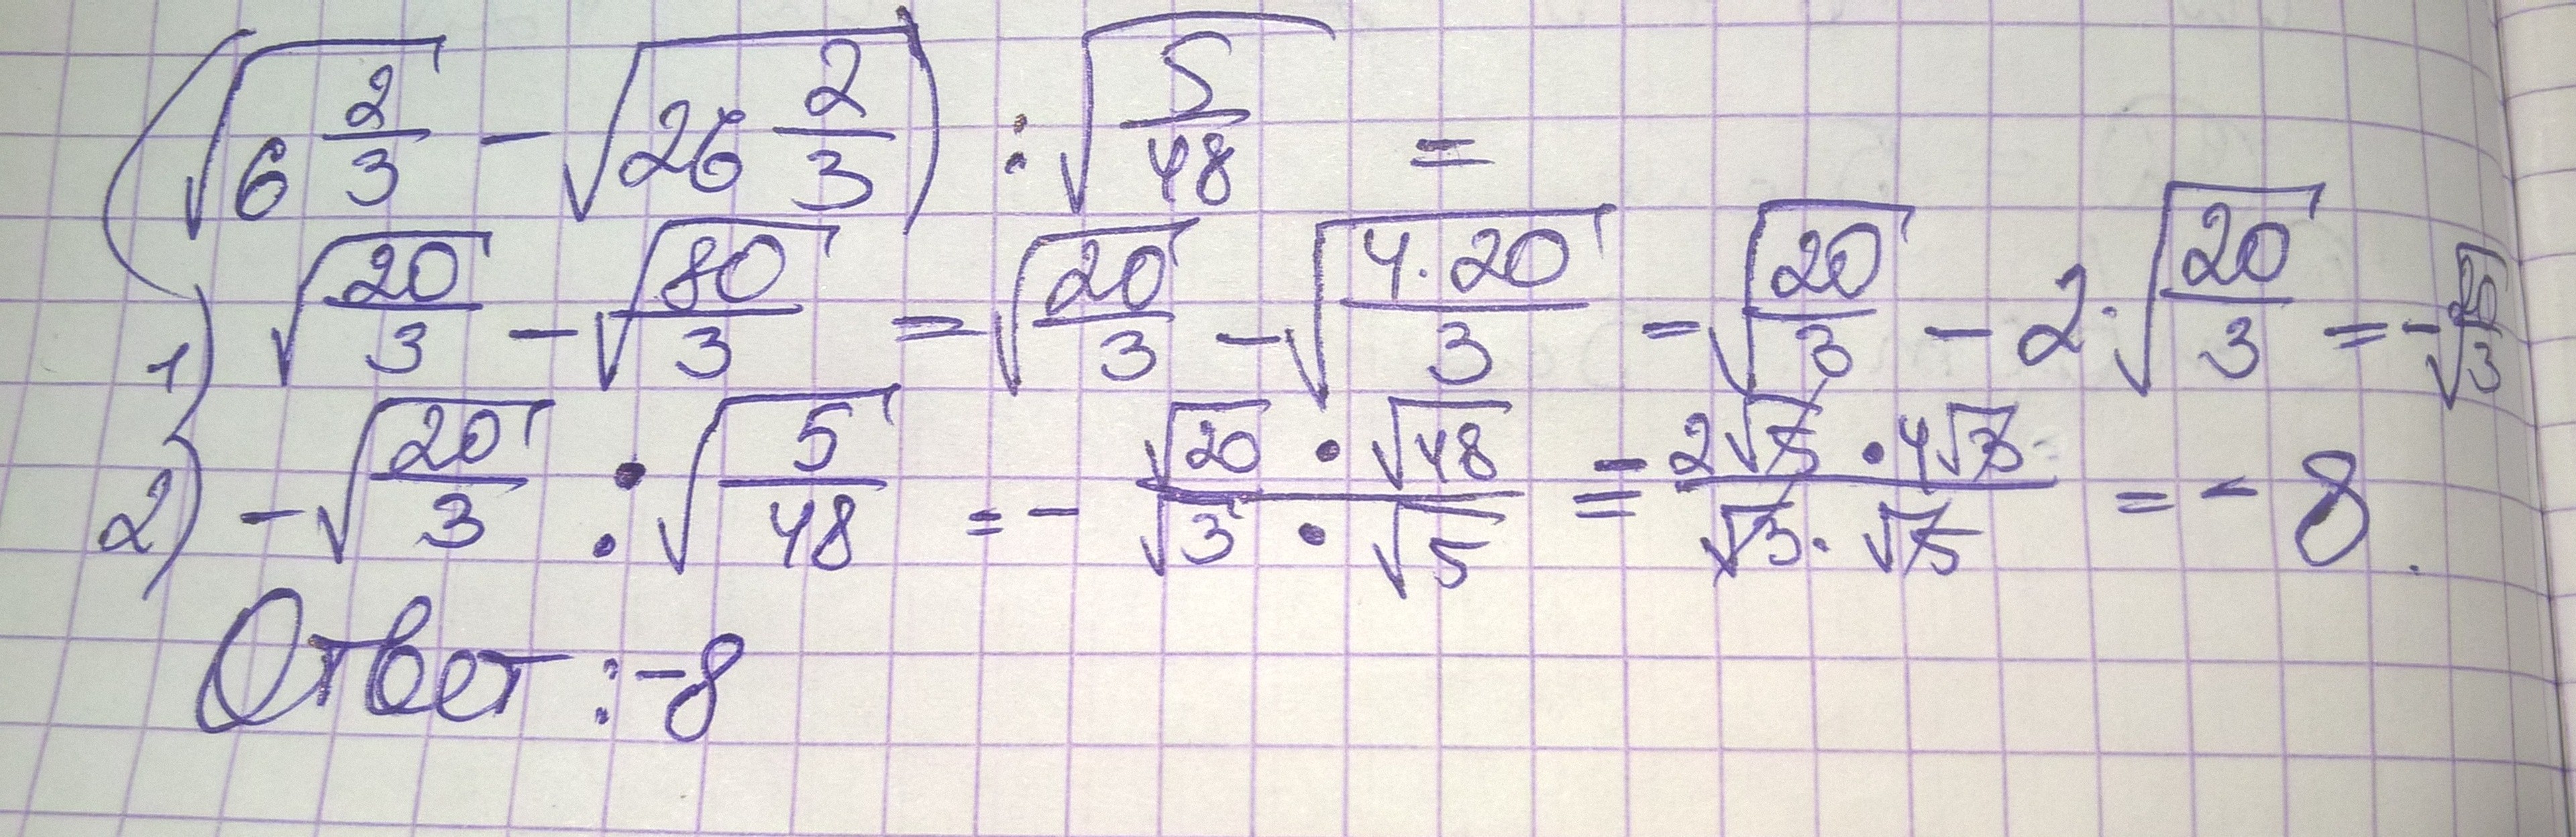 (√(6 2/3) − √(26 2/3)) : √(5/48) =
1) √(20/3) − √(80/3) = √(20/3) − √(4·20/3) = √(20/3) − 2·√(20/3) = −√(20/3)
2) −√(20/3) : √(5/48) = − (√20 · √48)/(√3 · √5) = − (2√5 · 4√3)/(√3 · √5) = −8.
Ответ: −8